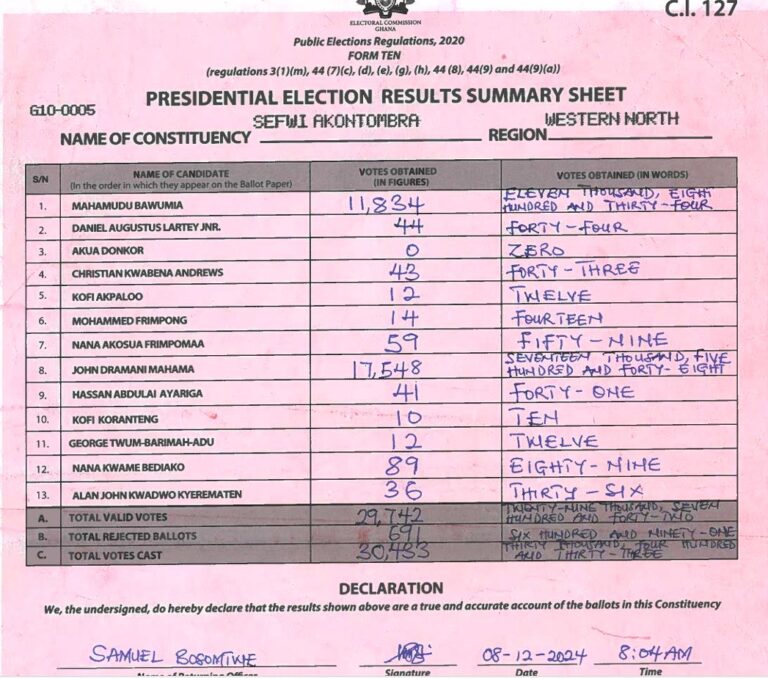 C.I. 127
ELECTORAL COMMISSION
GHANA
Public Elections Regulations, 2020
FORM TEN
(regulations 3(1)(m), 44 (7)(c), (d), (e), (g), (h), 44 (8), 44(9) and 44(9)(a))
PRESIDENTIAL ELECTION RESULTS SUMMARY SHEET
G10-0005
SEFWI AKONTOMBRA WESTERN NORTH
NAME OF CONSTITUENCY REGION
S/N NAME OF CANDIDATE (In the order in which they appear on the Ballot Paper) VOTES OBTAINED (IN FIGURES) VOTES OBTAINED (IN WORDS)
1. MAHAMUDU BAWUMIA 11,834 ELEVEN THOUSAND, EIGHT HUNDRED AND THIRTY-FOUR
2. DANIEL AUGUSTUS LARTEY JNR. 44 FORTY-FOUR
3. AKUA DONKOR 0 ZERO
4. CHRISTIAN KWABENA ANDREWS 43 FORTY-THREE
5. KOFI AKPALOO 12 TWELVE
6. MOHAMMED FRIMPONG 14 FOURTEEN
7. NANA AKOSUA FRIMPOMAA 59 FIFTY-NINE
8. JOHN DRAMANI MAHAMA 17,548 SEVENTEEN THOUSAND, FIVE HUNDRED AND FORTY-EIGHT
9. HASSAN ABDULAI AYARIGA 41 FORTY-ONE
10. KOFI KORANTENG 10 TEN
11. GEORGE TWUM-BARIMAH-ADU 12 TWELVE
12. NANA KWAME BEDIAKO 89 EIGHTY-NINE
13. ALAN JOHN KWADWO KYEREMATEN 36 THIRTY-SIX
A. TOTAL VALID VOTES 29,742 TWENTY-NINE THOUSAND, SEVEN HUNDRED AND FORTY-TWO
B. TOTAL REJECTED BALLOTS 691 SIX HUNDRED AND NINETY-ONE
C. TOTAL VOTES CAST 30,433 THIRTY THOUSAND, FOUR HUNDRED AND THIRTY-THREE
DECLARATION
We, the undersigned, do hereby declare that the results shown above are a true and accurate account of the ballots in this Constituency
SAMUEL BOSOMTWE 08-12-2024 8:04AM
Name of Returning Officer Signature Date Time